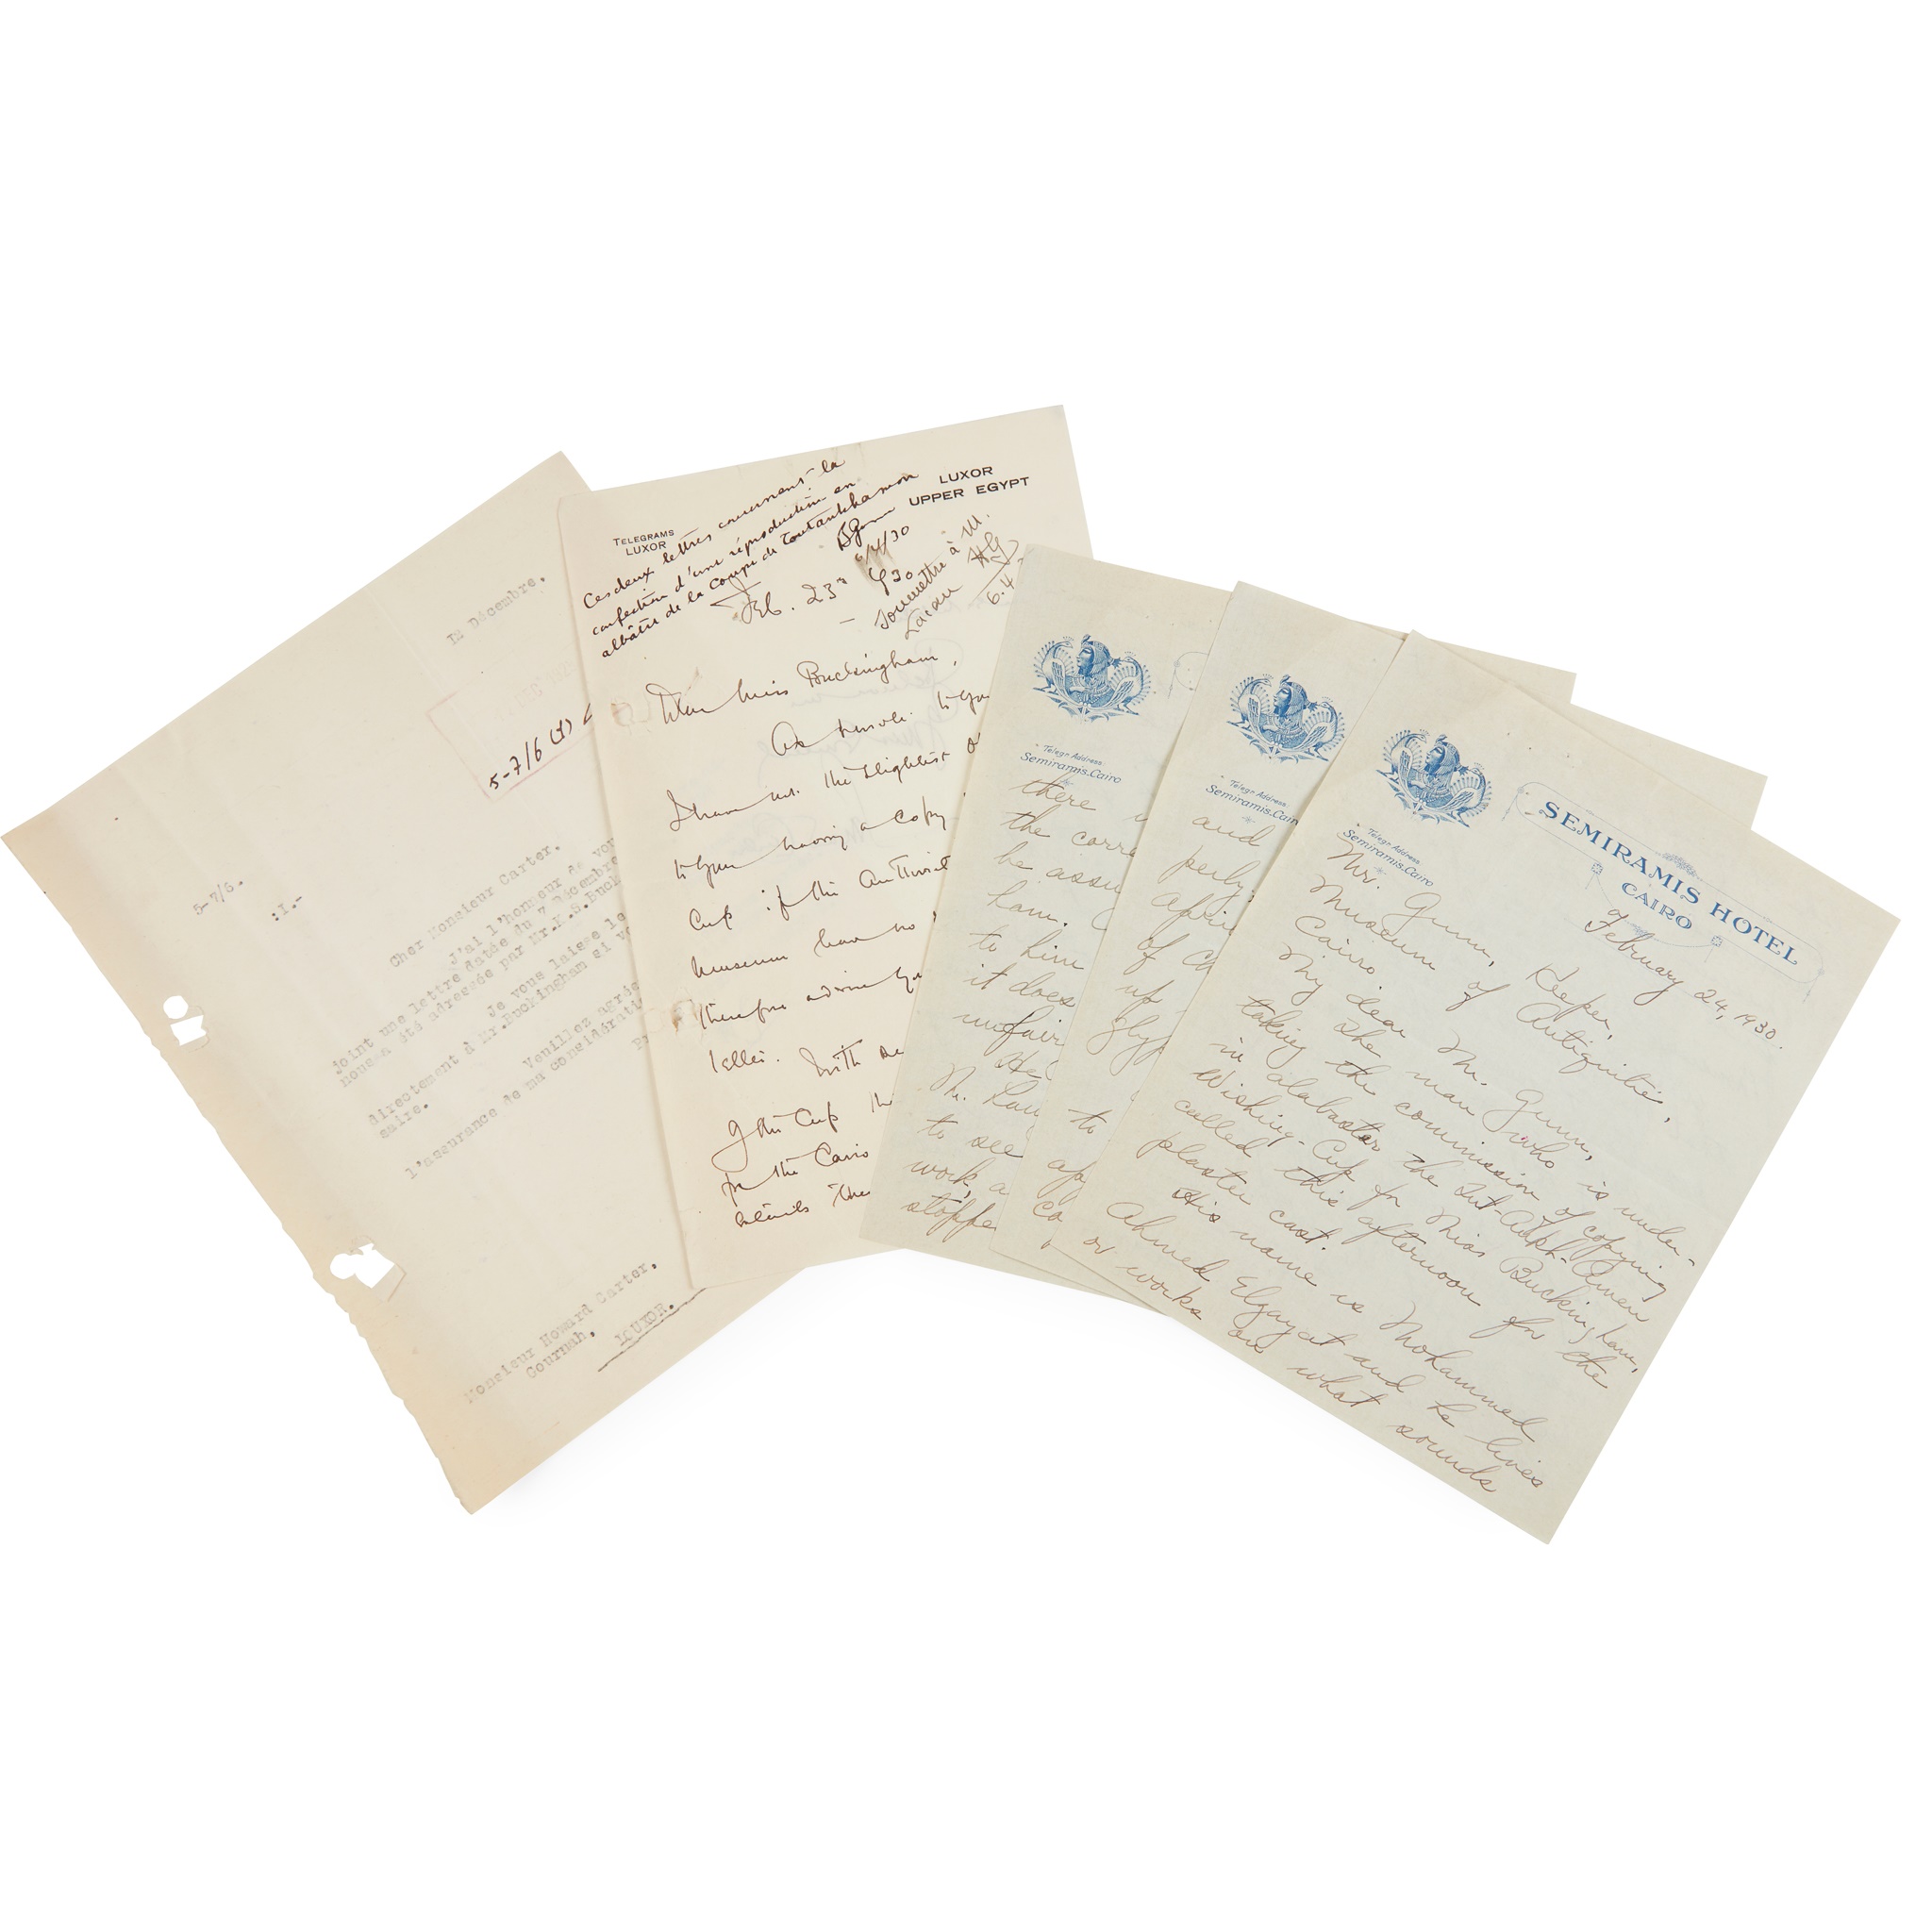 12 Décembre.
5-7/6 (1)
5-7/6.
:1.-
Cher Monsieur Carter,
J'ai l'honneur de vou
joint une lettre datée du 7 Décembre
nous a été adressée par Mr.K.S.Buck
Je vous laisse le
directement à Mr.Buckingham si vo
saire.
Veuillez agrée
l'assurance de ma considérati
Monsieur Howard Carter,
Gournah,
LUXOR.
TELEGRAMS
LUXOR
LUXOR
UPPER EGYPT
Ces deux lettres concernent la
confection d'une réproduction en
albâtre de la Coupe de Toutankhamon
BGunn
6/4/30
Soumettre à M.
Lacau
6.4
Feb. 23rd 930
Dear Miss Buckingham,
As to you
I have not the slightest o
to your having a Copy
Cup if the Authorit
Museum have no
therefore advise yo
letter. With
of the Cup the
for the Cairo
details the
Telegr. Address:
Semiramis.Cairo
there
the corre
be assu
ham.
to him
it does
unfair
He
Mr. Lau
to see
work, a
stoppe
Telegr. Address:
Semiramis.Cairo
and
perly;
Apri
of C
up
Glyp
to
ap
co
Telegr. Address:
Semiramis.Cairo
SEMIRAMIS HOTEL
CAIRO
February 24, 1930.
Mr. Gunn, Keeper,
Museum of Antiquities,
Cairo
My dear Mr. Gunn,
The man who is under-
taking the commission of copying
in alabaster the Tut-Ankh-Amen
Wishing-Cup for Miss Buckingham,
called this afternoon for the
plaster cast.
His name is Mohammed
Ahmed Elgayat and he lives
or works on what sounds